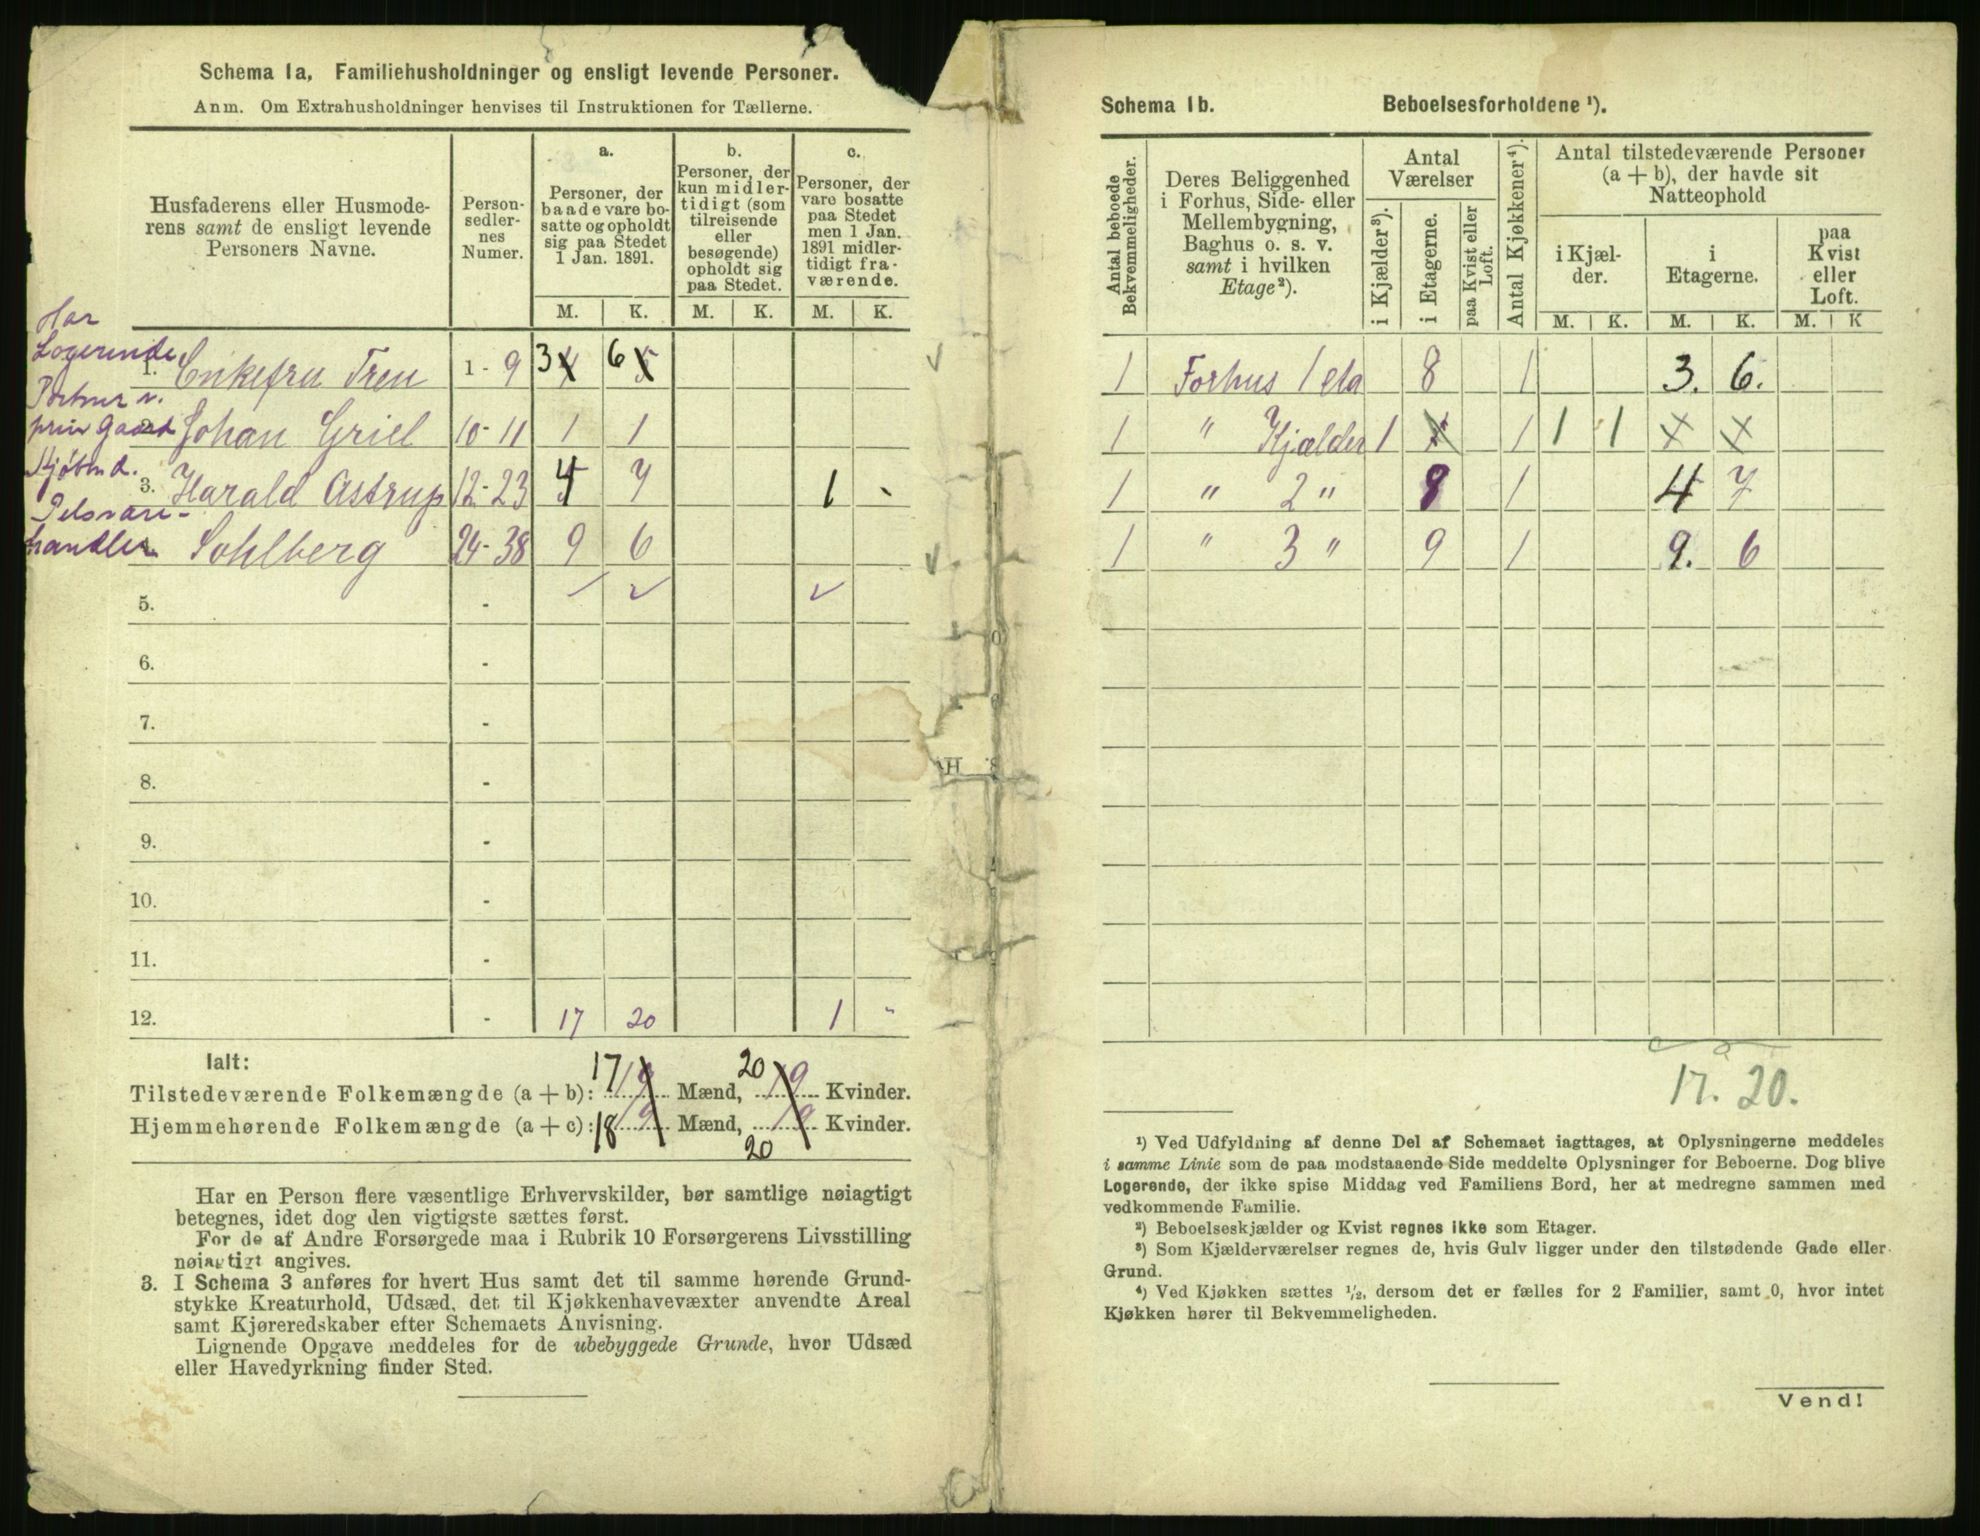 Schema 1a, Familiehusholdninger og ensligt levende Personer.
Anm. Om Extrahusholdninger henvises til Instruktionen for Tællerne.
Husfaderens eller Husmode-
rens samt de ensligt levende
Personers Navne.
Person-
sedler-
nes
Numer.
a.
Personer, der
baade vare bo-
satte og opholdt
sig paa Stedet
1 Jan. 1891.
b.
Personer, der
kun midler-
tidigt (som
tilreisende
eller
besøgende)
opholdt sig
paa Stedet.
c.
Personer, der
vare bosatte
paa Stedet
men 1 Jan.
1891 midler-
tidigt fra-
værende.
M. K. M. K. M. K.
Har
Logerende
1. Enkefru Treu 1 - 9 3 6
Portner v.
priv Gaard
2. Johan Griel 10 - 11 1 1
Kjøbmd.
3. Harald Astrup 12 - 23 4 7 1 -
Pelsvare-
handler
Sohlberg 24 - 38 9 6
5. -
6. -
7. -
8. -
9. -
10. -
11. -
12. - 17 20 1 "
Ialt:
Tilstedeværende Folkemængde (a + b): 17 19 Mænd, 20 19 Kvinder.
Hjemmehørende Folkemængde (a + c): 18 19 Mænd, 20 19 Kvinder.
Har en Person flere væsentlige Erhvervskilder, bør samtlige nøiagtigt
betegnes, idet dog den vigtigste sættes først.
For de af Andre Forsørgede maa i Rubrik 10 Forsørgerens Livsstilling
nøiagtigt angives.
3. I Schema 3 anføres for hvert Hus samt det til samme hørende Grund-
stykke Kreaturhold, Udsæd, det til Kjøkkenhavevæxter anvendte Areal
samt Kjøreredskaber efter Schemaets Anvisning.
Lignende Opgave meddeles for de ubebyggede Grunde, hvor Udsæd
eller Havedyrkning finder Sted.
Schema 1b. Beboelsesforholdene ¹).
Antal beboede
Bekvemmeligheder.
Deres Beliggenhed
i Forhus, Side- eller
Mellembygning,
Baghus o. s. v.
samt i hvilken
Etage ²).
Antal
Værelser
i Kjælder ³).
i Etagerne.
paa Kvist eller
Loft.
Antal Kjøkkener ⁴).
Antal tilstedeværende Personer
(a + b), der havde sit
Natteophold
i Kjæl-
der.
i
Etagerne.
paa
Kvist
eller
Loft.
M. K. M. K. M. K
1 Forhus 1 eta 8 1 3. 6.
1 " Kjælder 1 1 1 1
1 " 2 " 8 1 4 7
1 " 3 " 9 1 9. 6
17. 20.
¹) Ved Udfyldning af denne Del af Schemaet iagttages, at Oplysningerne meddeles
i samme Linie som de paa modstaaende Side meddelte Oplysninger for Beboerne. Dog blive
Logerende, der ikke spise Middag ved Familiens Bord, her at medregne sammen med
vedkommende Familie.
²) Beboelseskjælder og Kvist regnes ikke som Etager.
³) Som Kjælderværelser regnes de, hvis Gulv ligger under den tilstødende Gade eller
Grund.
⁴) Ved Kjøkken sættes ½, dersom det er fælles for 2 Familier, samt 0, hvor intet
Kjøkken hører til Bekvemmeligheden.
Vend!